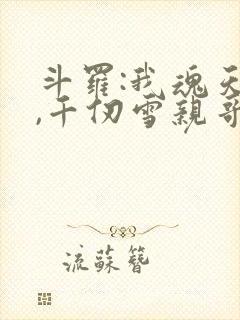 斗罗:我魂天
,千仞雪亲哥
流蘇簪